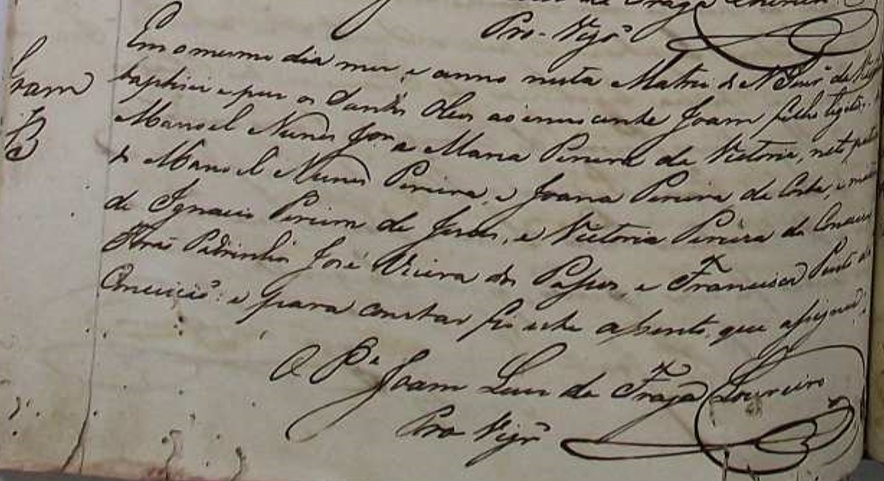 de Fraga Loureiro
Pro-Vigrº
Joam
Em o mesmo dia mez, e anno nesta Matriz de N Senrª da
baptizei e puz os Santos Oleos ao innocente Joam filho legitº
Manoel Nunes Jor e Maria Pereira da Victoria, net pat
de Manoel Nunes Pereira, e Joana Pereira da Costa, e mat
de Ignacio Pereira de Jesus, e Victoria Pereira da Conceic
Forão Padrinhos José Vieira dos Passos, e Francisca Pinto da
Conceicão: e para constar fiz este assento, que assignei.
O Pe Joam Luis de Fraga Loureiro
Pro Vigrº